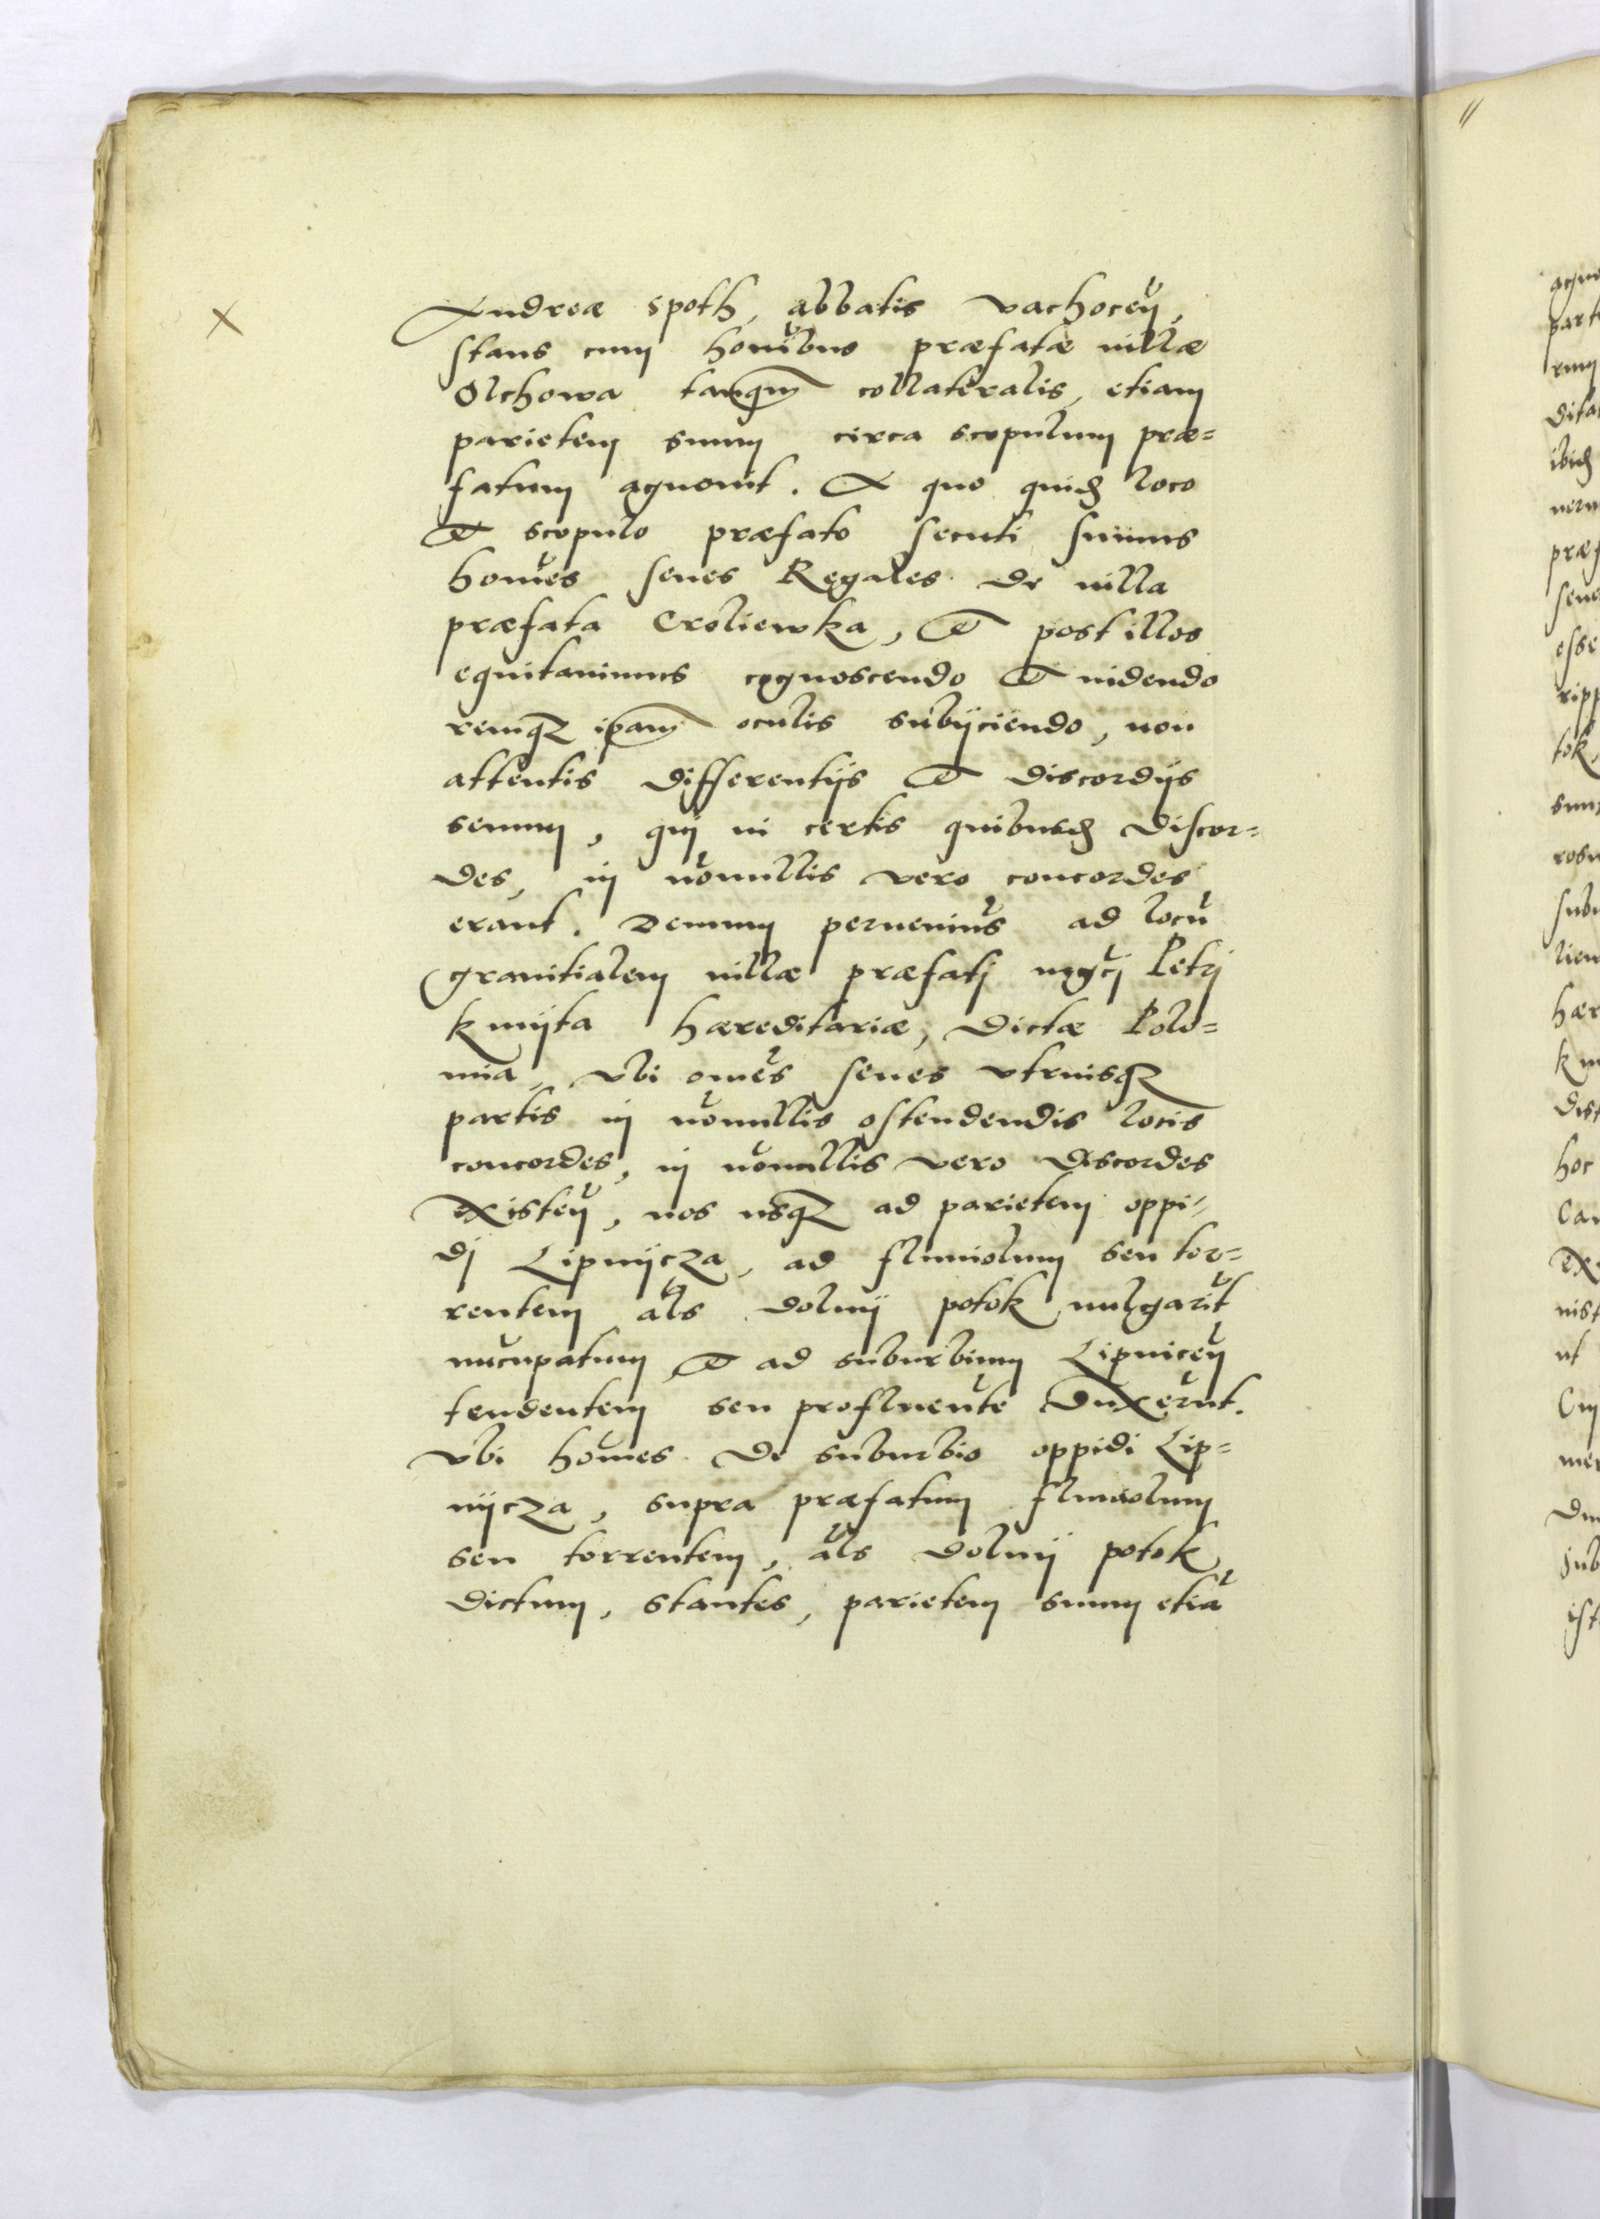 Andreæ Spoth, abbatis Vachoceñ,
stans cum homĩbus præfatæ uillæ
Olchowa tanqm̃ collateralis, etiam
parietem suum circa scopulum præ=
fatum agnouit. A quo quidẽ loco
et scopulo præfato secuti sumus
homĩes senes Regales de uilla
præfata Croliewka, et post illos
equitauimus cognoscendo et uidendo
remq3 ip̃am oculis subijciendo, non
attentis differentijs et discordijs
senum, qui in certis quibusdẽ discor=
des, in nõnullis vero concordes
erant. Demum peruenimũs ad locũ
granitialem uillæ præfatj mgcĩ Petrj
kmijta hæreditariæ, dictæ Polo=
mia, vbi omẽs senes vtriusq3
partis in nõnullis ostendendis locis
concordes, in nõnullis vero discordes
existeñ, nos usq3 ad parietem oppi-
dj Lipnijcza, ad fluuiolum seu tor=
rentem al̃s dolnij potok uulgarĩt
nũcupatum et ad suburbium Lipniceñ
tendentem seu profluentẽ duxerũt.
Vbi homĩes de suburbio oppidi Lip=
nijcza, supra præfatum fluuiolum
seu torrentem, al̃s dolnij potok
dictum, stantes, parietem suum etiã